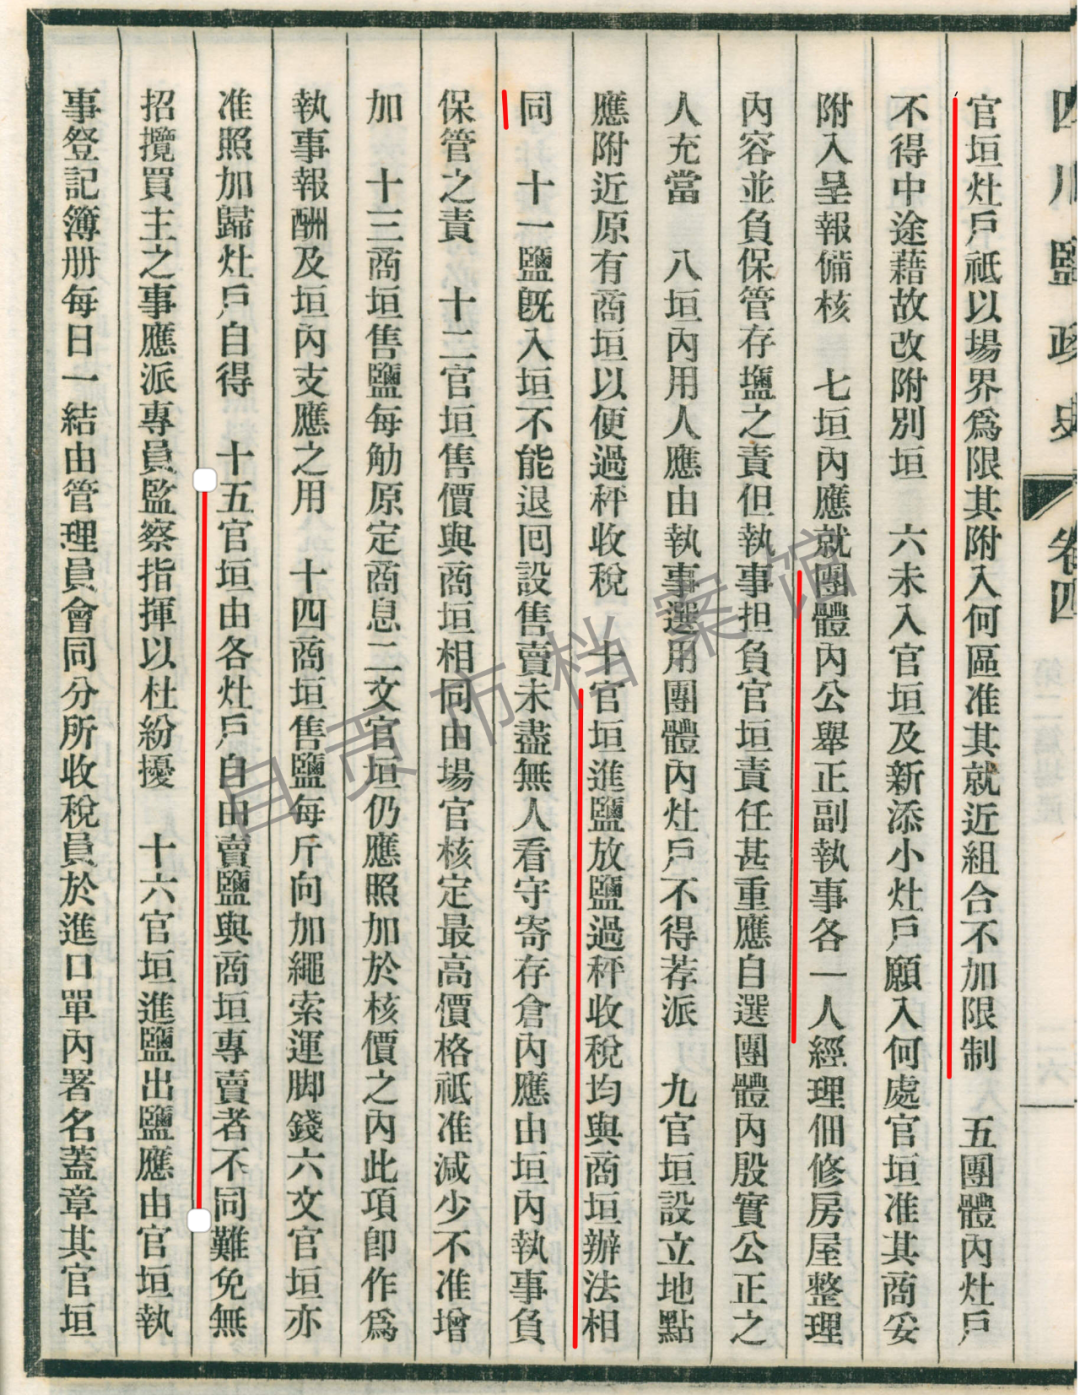 四川鹽政史 卷四
官垣灶戶祗以場界爲限其附入何區准其就近組合不加限制 五團體內灶戶
不得中途藉故改附別垣 六未入官垣及新添小灶戶願入何處官垣准其商妥
附入呈報備核 七垣內應就團體內公舉正副執事各一人經理佃修房屋整理
內容並負保管存塩之責但執事担負官垣責任甚重應自選團體內殷實公正之
人充當 八垣內用人應由執事選用團體內灶戶不得荐派 九官垣設立地點
應附近原有商垣以便過秤收稅 十官垣進鹽放鹽過秤收稅均與商垣辦法相
同 十一鹽旣入垣不能退回設售賣未盡無人看守寄存倉內應由垣內執事負
保管之責 十二官垣售價與商垣相同由場官核定最高價格祗准減少不准增
加 十三商垣售鹽每觔原定商息二文官垣仍應照加於核價之內此項卽作爲
執事報酬及垣內支應之用 十四商垣售鹽每斤向加繩索運脚錢六文官垣亦
准照加歸灶戶自得 十五官垣由各灶戶自由賣鹽與商垣專賣者不同難免無
招攬買主之事應派專員監察指揮以杜紛擾 十六官垣進鹽出鹽應由官垣執
事登記簿册每日一結由管理員會同分所收稅員於進口單內署名蓋章其官垣
自贡市档案馆